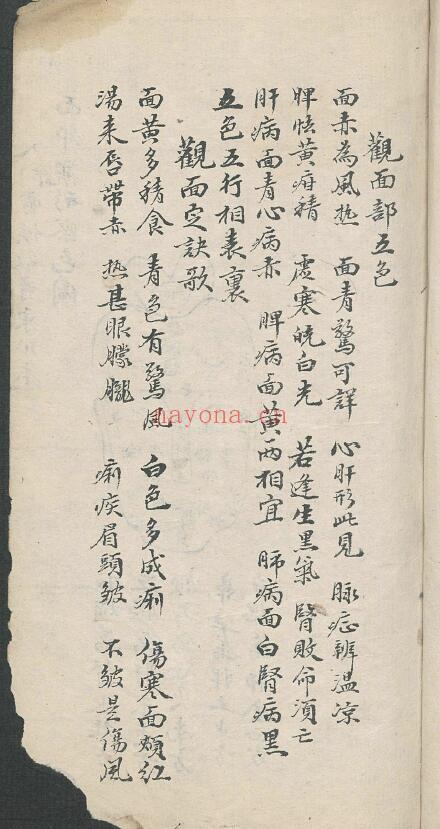 觀面部五色
面赤為風热 面青驚可詳 心肝形此見 脉症辨溫凉
脾怯黃疳積 虛寒㿠白光 若逢生黑氣 腎敗命湏亡
肝病面青心病赤 脾病面黃两相宜 肺病面白腎病黑
五色五行相表裏
觀面定訣歌
面黃多積食 青色有驚風 白色多成痢 傷寒面頰紅
湯来唇帶赤 热甚眼朦朧 痢疾眉頭皱 不皱是傷風
nayona.cn